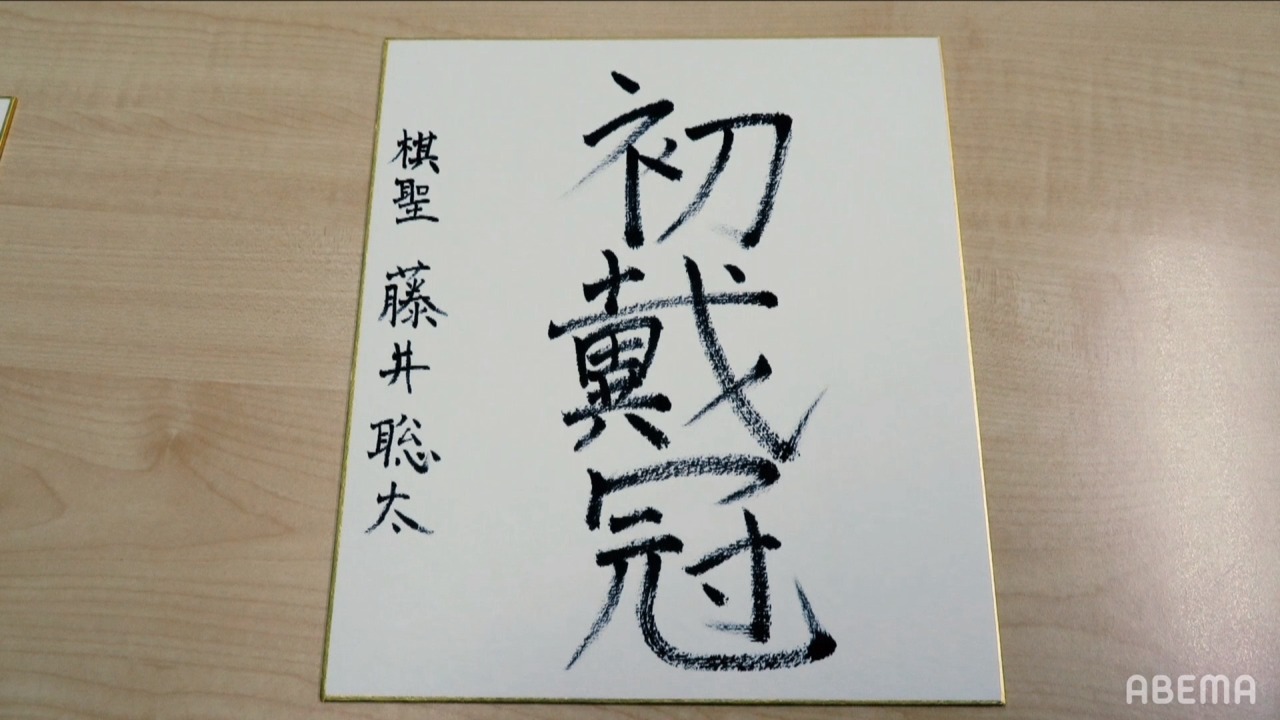 初戴冠
棋聖 藤井聡太
ABEMA